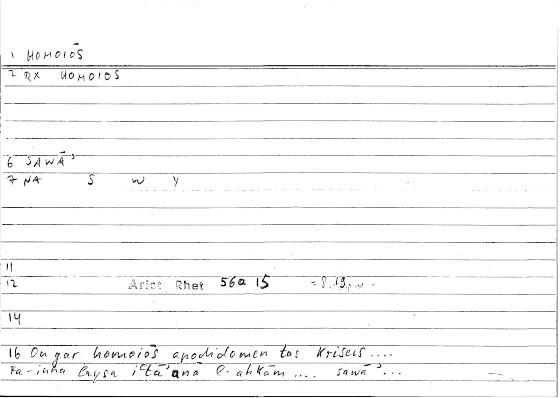 1 HOMOIŌS
2 RX HOMOIOS
6 SAWĀʾ
7 NA S W Y
11
12 Arist Rhet 56a 15 = 8,19
14
16 Ou gar homoiōs apodidomen tas kriseis....
Fa-inna laysa iʿtāʾanā l-aḥkām .... sawāʾ...